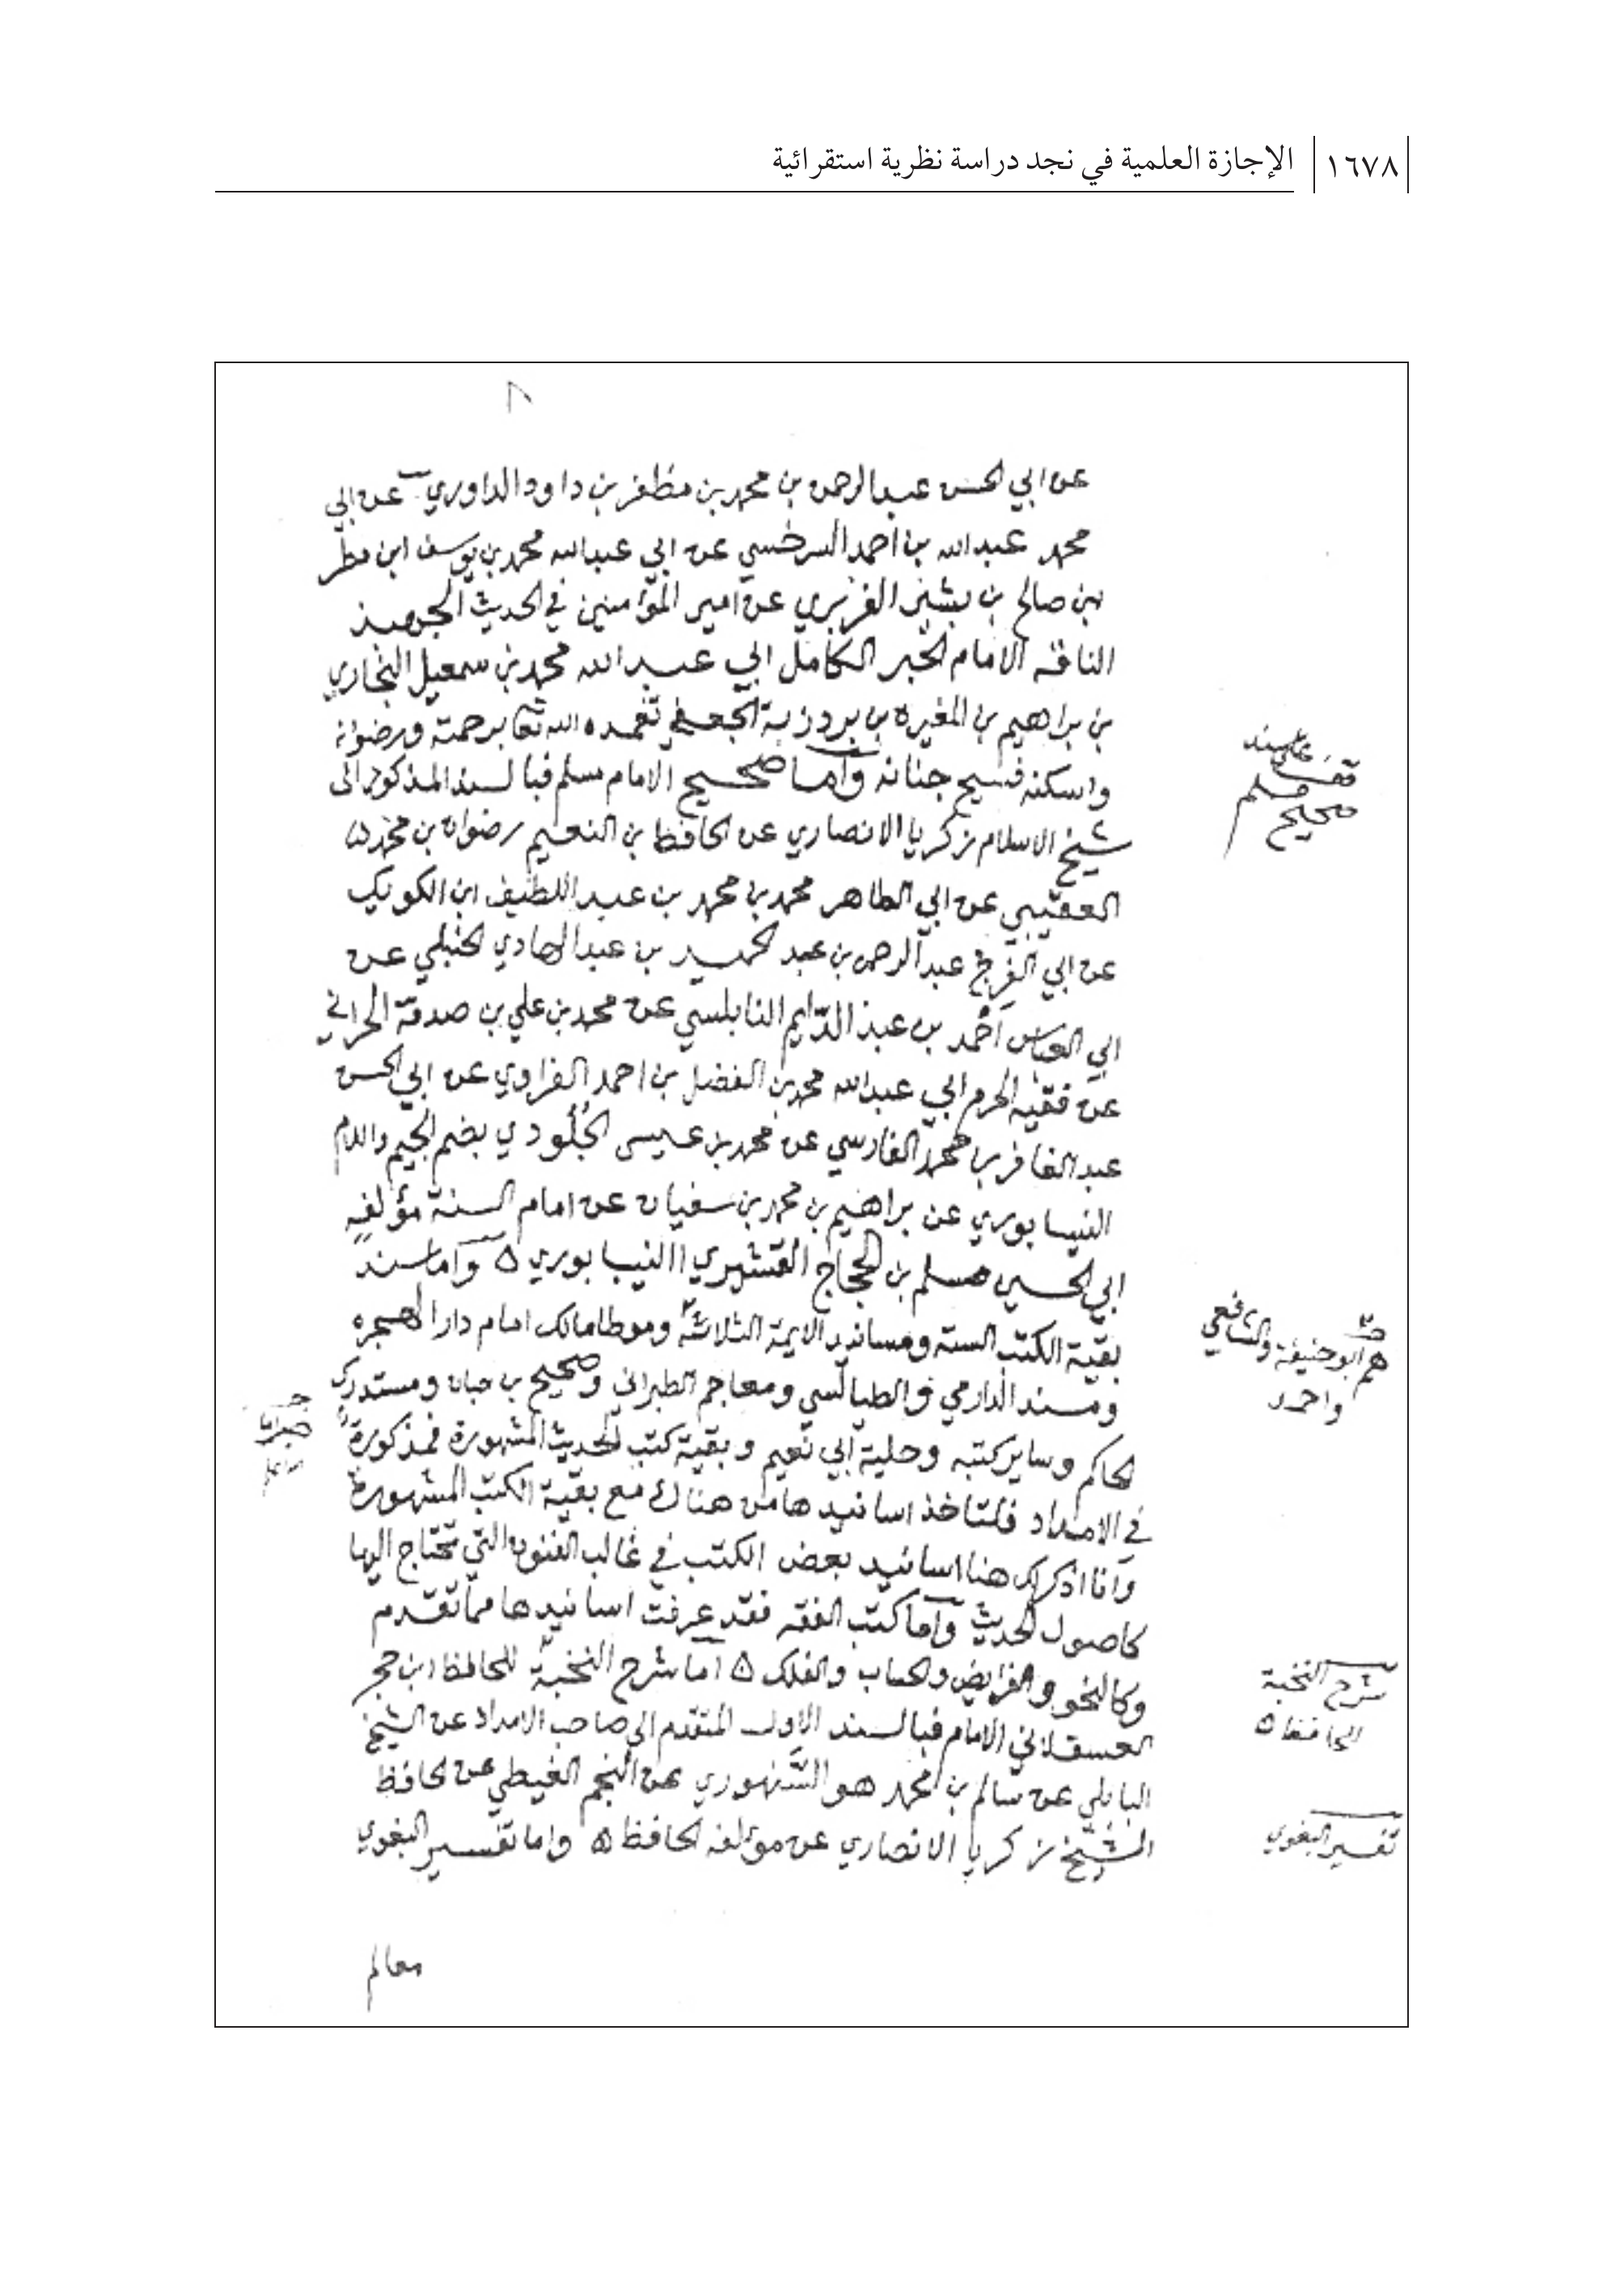 ١٦٧٨ الإجازة العلمية في نجد دراسة نظرية استقرائية
٨
عن ابي الحسن عبدالرحمن بن محمد بن مظفر بن داود الداوري عن ابي
محمد عبدالله بن احمد السرخسي عن ابي عبدالله محمد بن يوسف ابن مطر
بن صالح بن بشير الفربري عن امير المؤمنين في الحديث الجهبذ
الناقد الامام الحبر الكامل ابي عبدالله محمد بن سمعيل البخاري
بن براهيم بن المغيره بن بردزبة الجعفي تغمده الله تعا برحمته ورضوانه
واسكنه فسيح جنانه وأما صحيح الامام مسلم فبا لسند المذكور الى
شيخ الاسلام زكريا الانصاري عن الحافظ بن النعيم رضوان بن محمد
العقبي عن ابي الطاهر محمد بن محمد بن عبد اللطيف ابن الكويك
عن ابي الفرج عبدالرحمن بن عبد الحميد بن عبدالهادي الحنبلي عن
ابي العباس أحمد بن عبد الدايم النابلسي عن محمد بن علي بن صدقة الحراني
عن فقيه الحرم ابي عبدالله محمد بن الفضل بن احمد الفراوي عن ابي الحسن
عبد الغافر بن محمد الفارسي عن محمد بن عيسى الجُلُودي بضم الجيم واللام
النيسا بوري عن براهيم بن محمد بن سفيان عن امام السنة مؤلفه
ابي الحسين مسلم بن الحجاج القشيري النيسا بوري ٥ وأما سند
بقية الكتب الستة ومسانيد الايمة الثلاثة وموطا مالك امام دار الهجره
ومسند الدارمي والطيالسي ومعاجم الطبراني وصحيح بن حبان ومستدرك
الحاكم وساير كتبه وحلية ابي نعيم وبقية كتب الحديث المشهورة فمذكورة
في الامداد فلتاخذ اسانيدها من هناك مع بقية الكتب المشهورة
وأنا اذكر لك هنا اسانيد بعض الكتب في غالب الفنون التي تحتاج اليها
كاصول الحديث وأما كتب الفقه فقد عرفت اسانيدها مما تقدم
وكالنحو والفرايض والحساب والفلك ٥ أما شرح النخبة للحافظ ابن حجر
العسقلاني الامام فبا لسند الاول المتقدم الى صاحب الامداد عن الشيخ
البابلي عن سالم بن محمد هو السنهوري عن النجم الغيطي عن الحافظ
الشيخ زكريا الانصاري عن مؤلفه الحافظ ٥ واما تفسير البغوي
معالم
قف على سند
صحيح مسلم
هم ابو حنيفة والشافعي
واحمد
شرح النخبة
الحافظ ٥
تفسير البغوي